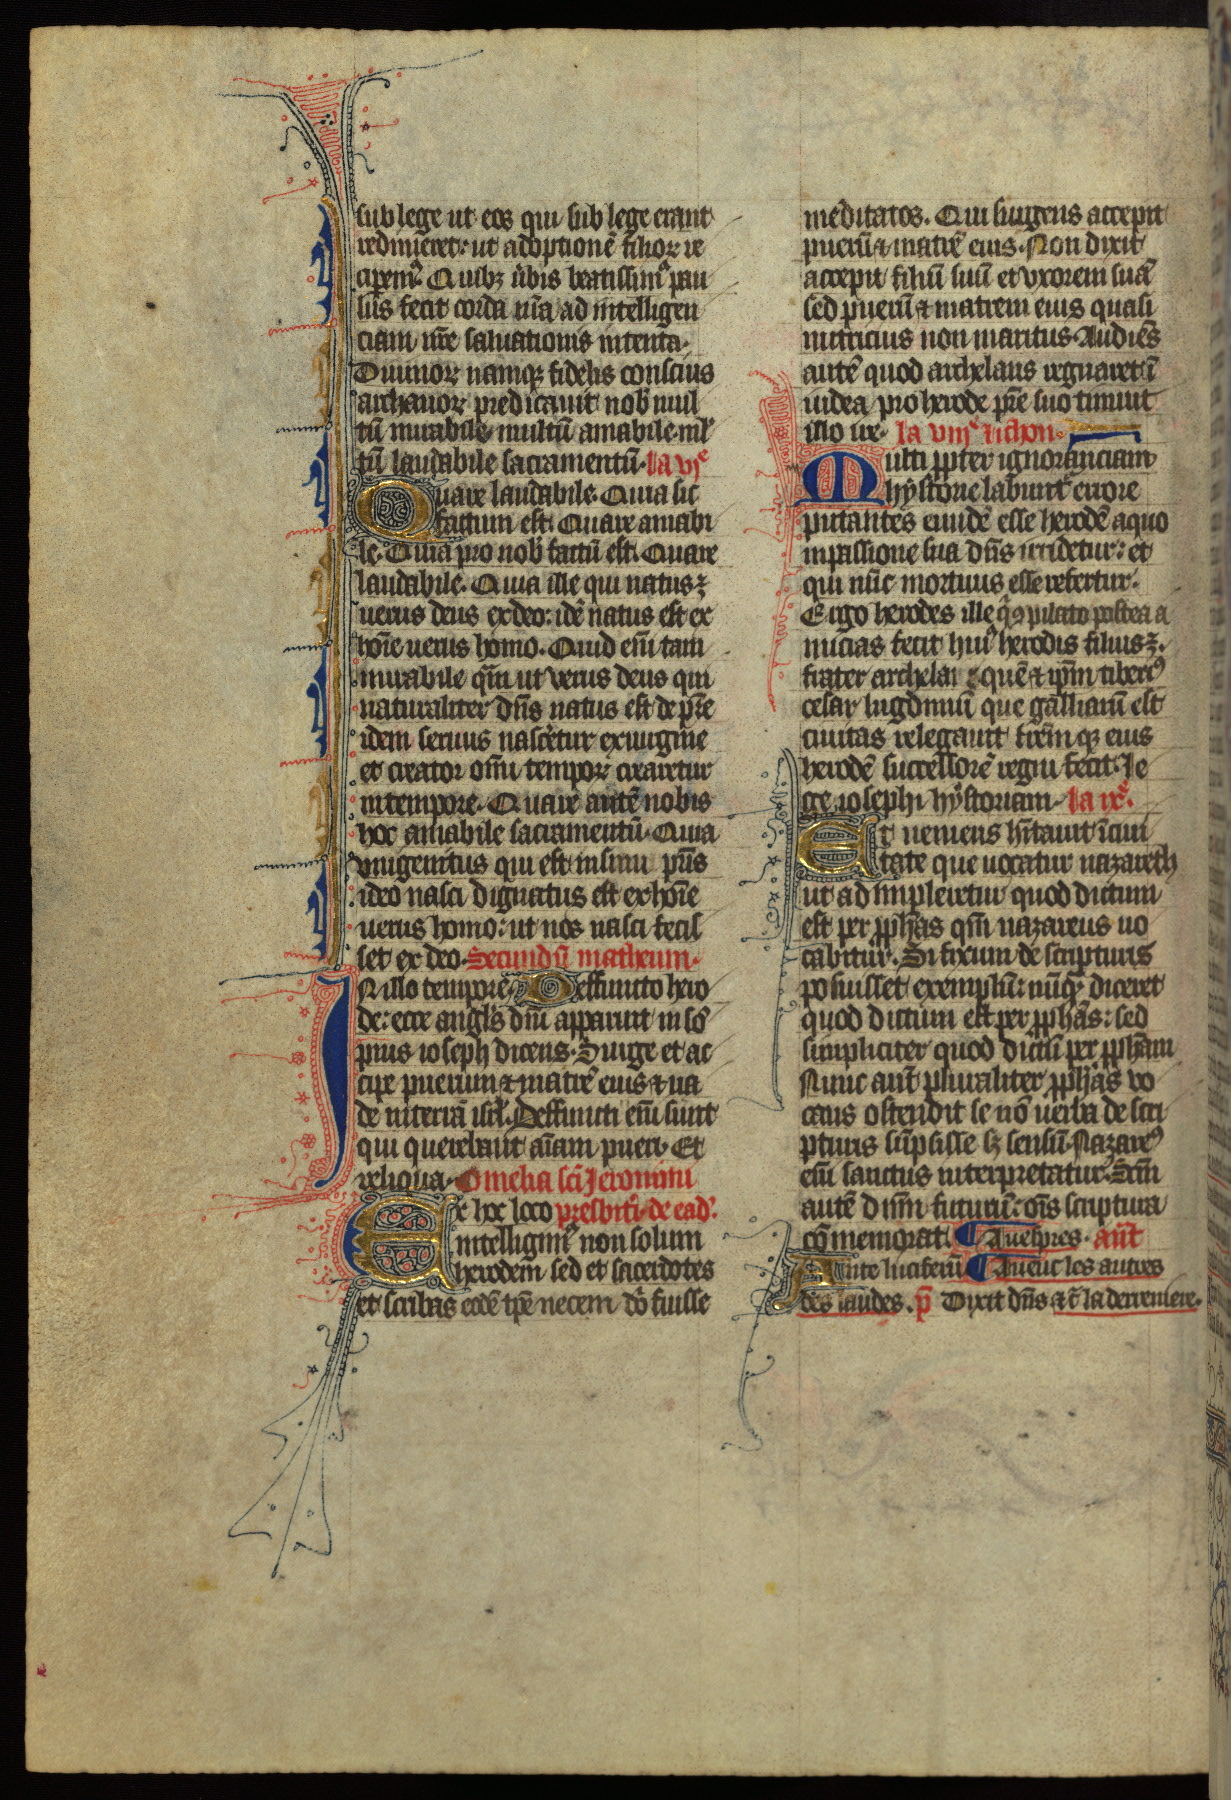 sub lege ut eos qui sub lege erant
redimeret: ut adoptionē filioꝝ re
ciperemꝰ. Quibꝫ ūbis beatissimꝰ pau
lus fecit corda nr̄a ad intelligen
ciam nr̄e saluationis intenta.
Diuinoꝝ namqꝫ fidelis conscius
archanoꝝ predicauit nob̄ mul
tū mirabile. multū amabile. ml̄
tū laudabile sacramentū. la vjͤ
Quare laudabile. Quia sic
factum est. Quare amabi
le. Quia pro nob̄ factū est. Quare
laudabile. Quia ille qui natus ē
uerus deus ex deo: idē natus est ex
hoīe uerus homo. Quid eīm tam
mirabile q̄m ut verus deus qui
naturaliter dn̄s natus est de pr̄e
idem seruus nasc̄etur ex uirgine
et creator om̄iū tempoꝝ crearetur
in tempore. Quare autē nobis
hoc amabile sacramentū. Quia
vnigenitus qui est in sinu pr̄is
ideo nasci dignatus est ex hoīe
uerus homo: ut nos nasci fecis
set ex deo. Secundū matheum.
IN illo tempore Deffuncto hero
de: ecce angl̄s dn̄i apparuit in sō
pnis ioseph dicens. Surge et ac
cipe puerum ⁊ matrē eius ⁊ ua
de in terrā isrl̄. Deffuncti eīm sunt
qui querebant aīam pueri. Et
reliqua. Omelia sc̄i Jeronimi
Ex hoc loco presbit̄i. de eadꝰ.
intelligimꝰ non solum
herodem sed et sacerdotes
et scribas eodē tp̄e necem dn̄i fuisse
meditatos. Qui surgens accepit
puerū ⁊ matrē eius. Non dixit
accepit filiū suū et vxorem suā
sed puerū ⁊ matrem eius quasi
nutricius non maritus. Audiēs
autē quod archelaus regnaret ī
iudea pro herode pr̄e suo timuit
illo ire. la viijͤ
Multi ꝓpter ignoranciam
hẏstorie labunt̄ errore
putantes eundē esse herodē a quo
in passione sua dn̄s irridetur: et
qui nūc mortuus esse refertur.
Ergo herodes ille q̄ ꝯ pilato postea a
micias fecit huiꝰ herodis filius ē.
frater archelai quē ⁊ ip̄m tiberiꝰ
cesar lugdunū que galliarū est
ciuitas relegauit frēmqꝫ eius
herodē successorē regni fecit. Le
ge iosephi hẏstoriam. la ixͤ.
Et ueniens hītauit ī ciui
tate que uocatur nazareth
ut adimpleretur quod dictum
est per ꝓphās qm̄ nazareus uo
cabitur. Si fixum de scripturis
posuisset exemplū: nūqꝫ diceret
quod dictum est per ꝓphās: sed
simpliciter quod dictū per ꝓphām
Nunc aut̄ pluraliter ꝓphās vo
cans ostendit se nō uerba de scri
pturis sūpsisse sꝫ sensū. Nazareꝰ
eīm sanctus interpretatur. Scm̄
autē dn̄m futurū: om̄s scriptura
cōmemorat. A uespres. ant̄
Ante luciferū Auenc les autres
des laudes. p̄ Dixit dn̄s ⁊c̄ la derreniere.